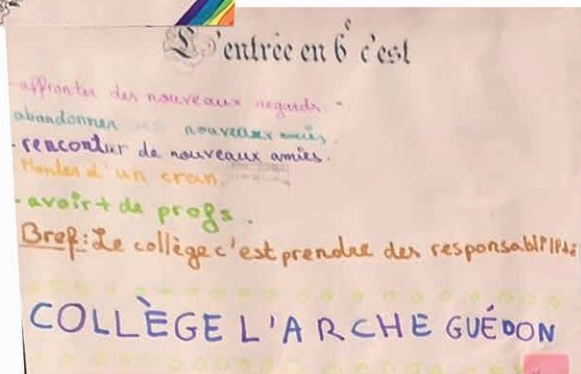 L'entrée en 6e c'est
- affronter des nouveaux regards -
abandonner nouveaux amis.
- rencontrer de nouveaux amies.
Monter d'un cran.
- avoir + de profs.
Bref: Le collège c'est prendre des responsabilités
COLLÈGE L'ARCHE GUÉDON